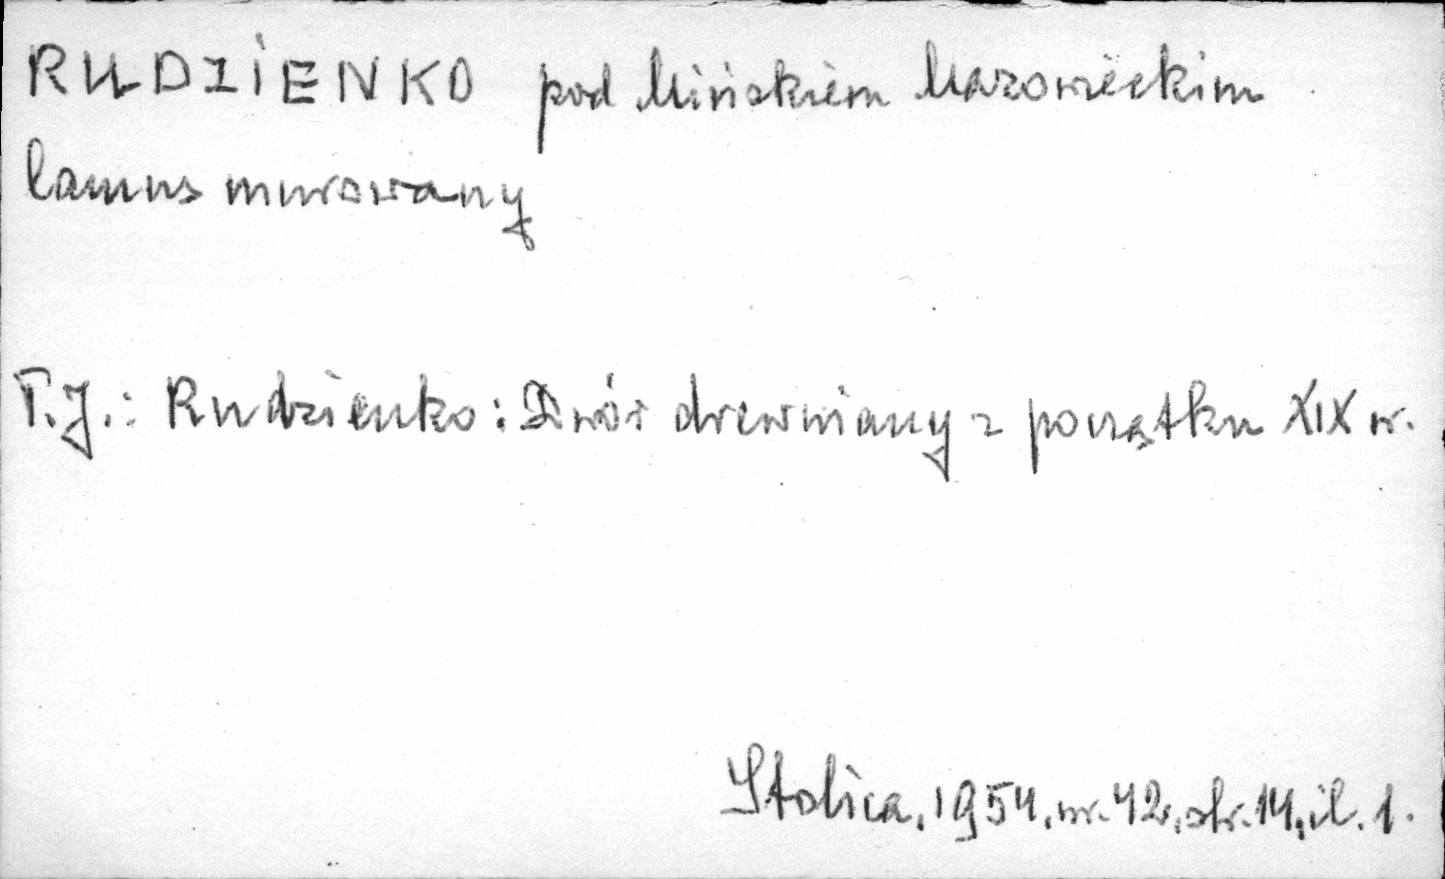 RUDZIENKO pod Mińskiem Mazowieckim
lamus murowany
T.J.: Rudzienko: Dwór drewniany z początku XIX w.
Stolica, 1954, nr. 42, str. 14, il. 1.